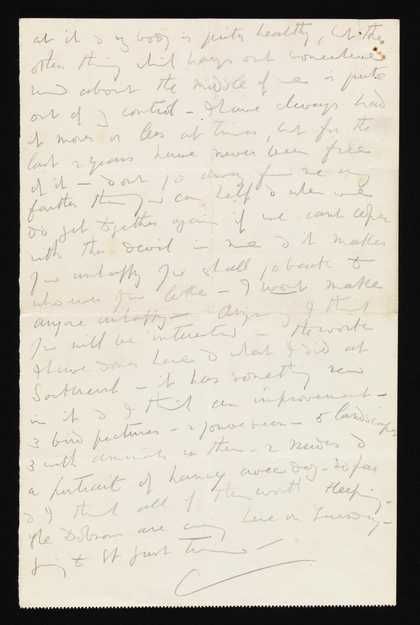 at it & my body is quite healthy, but the
other thing which hangs out somewhere
about the middle of me is quite
out of control – I have always had
it more or less at times, but for the
last 2 years have never been free
of it – Don't go away from me any
farther than you can help & when we
do get together again if we can't cope
with this devil in me & it makes
you unhappy you shall go back to
whoever you like – I won't make
anyone unhappy – Anyway I think
you will be interested – the work
I have done here & what I did at
Southend – it has something new
in it & I think an improvement –
3 bird pictures – 2 – 5 landscapes
3 with animals in them – 2 nudes &
a portrait of – so far
& I think all of them worth keeping –
The Dobsons are here on Tuesday –
going to St Just